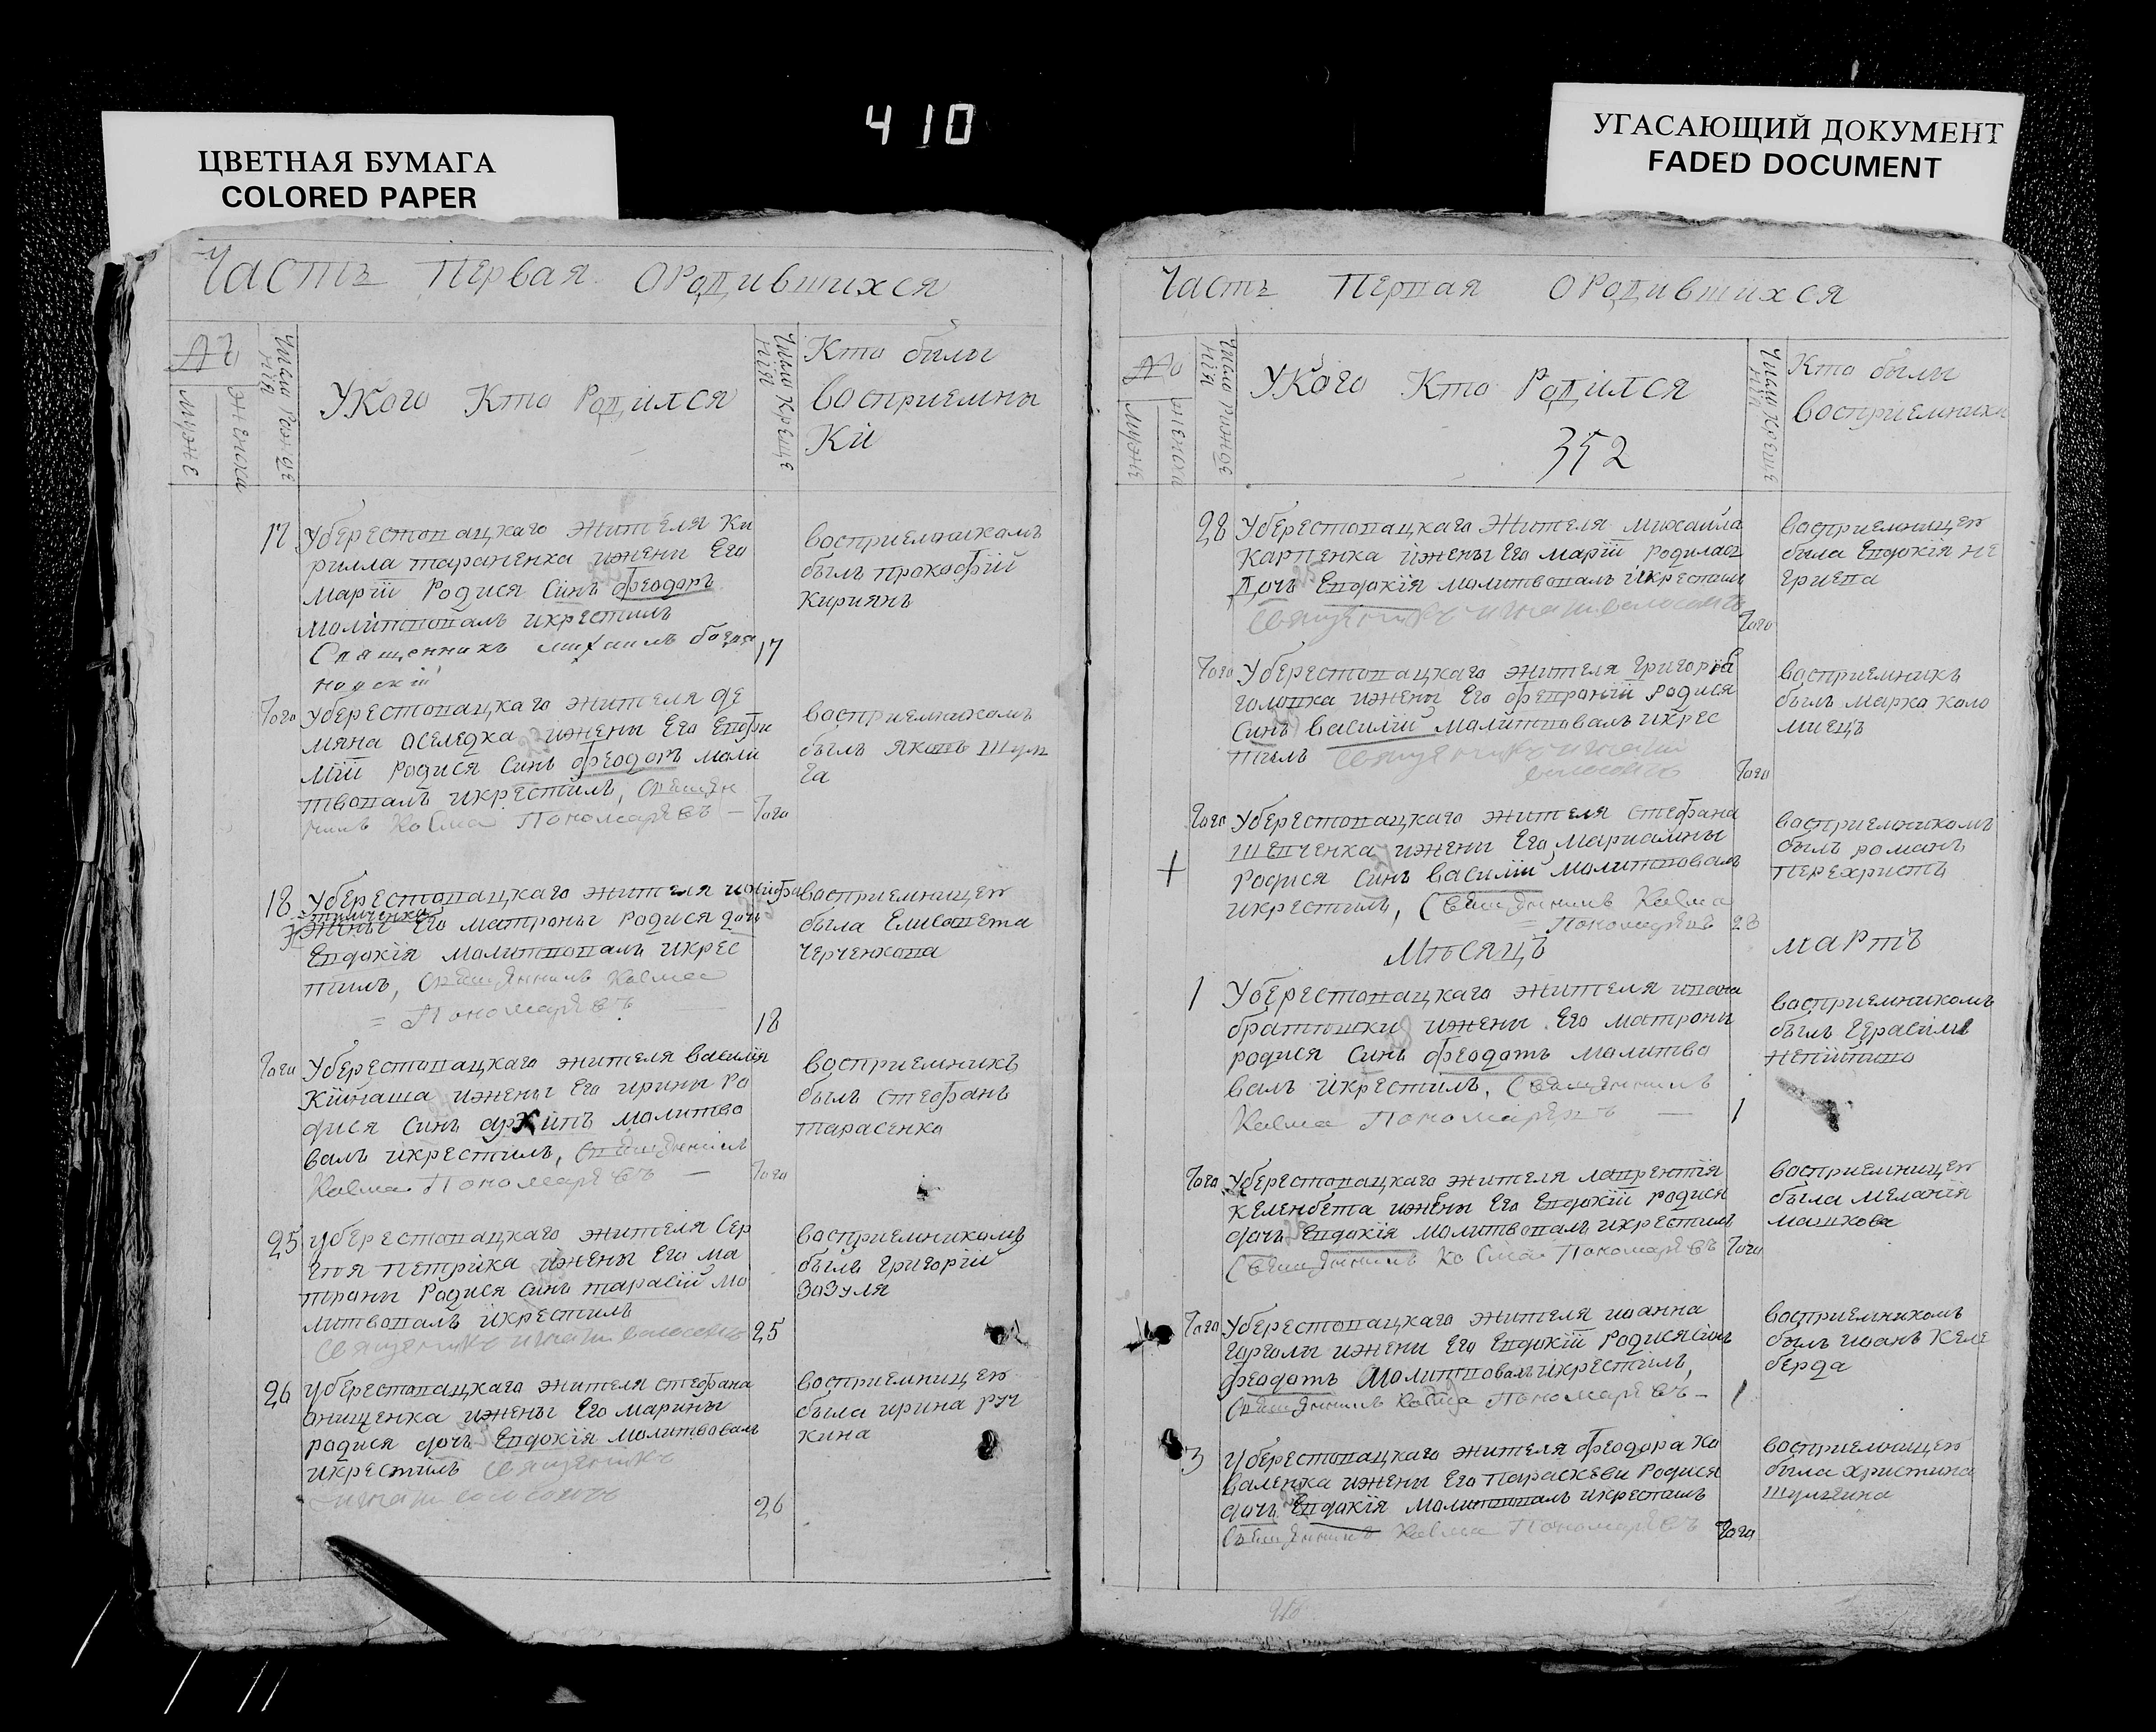 410
ЦВЕТНАЯ БУМАГА
COLORED PAPER
УГАСАЮЩИЙ ДОКУМЕНТ
FADED DOCUMENT
Часть Первая ОРодившихся
№
Муже
Женска
Число Рожде
нія
УКого Кто Родился
Число Креще
нія
Кто были
восприемни
Ки
17 Уберестовацкаго жителя Ки
рилла тараненка ижены Его
маріи Родися Синъ феодоръ
молитвовалъ икрестилъ
Священникъ михаилъ
17
восприемникомъ
былъ прокофій
Кириянъ
Того Уберестовацкаго жителя де
мяна оселедка ижены Его Евфи
міи родися Синъ феодоръ моли
твовалъ икрестилъ, Священ
никъ Косма Пономаревъ — Того
восприемникомъ
былъ яковъ шул
га
18 Уберестовацкаго жителя иосифа
жены Его матроны родися дочь
Евдокія молитвовалъ икрес
тилъ, Священникъ Косма
= Пономаревъ
18
восприемницею
была Елисавета
черченкова
Того Уберестовацкаго жителя василія
Кійнаша ижены Его ирины Ро
дися Синъ архипъ молитво
валъ икрестилъ, Священникъ
Косма Пономаревъ — Того
восприемникъ
былъ стефанъ
тарасенко
25 Уберестовацкаго жителя Сер
гія петрика ижены Его ма
троны Родися Синъ тарасій мо
литвовалъ икрестилъ
Священникъ игнатій 25
восприемникомъ
былъ григорій
Зозуля
26 Уберестовацкаго жителя стефана
онищенка ижены Его марины
родися дочь Евдокія молитвовалъ
икрестилъ Священникъ
игнатій
26
восприемницею
была ирина руч
кина
Часть Первая ОРодившихся
№
Мужеъ
женска
Число Рожде
нія
УКого Кто Родился
352
Число Креще
нія
Кто были
восприемники
28 Уберестовацкаго Жителя михаила
Карпенка ижены Его маріи родилась
дочь Евдокія молитвовалъ икрестилъ
Священникъ игнатій
Того
восприемницею
была Евдокія не
гриева
Того Уберестовацкаго жителя григорія
головка ижены Его февроніи родися
Синъ василій молитвовалъ икрес
тилъ Священникъ игнатій
Того
восприемникъ
былъ марко коло
миецъ
Того Уберестовацкаго жителя стефана
шевченка ижены Его мариамны
Родися Синъ василій молитвовалъ
икрестилъ, Священникъ Косма
= Пономаревъ 28
восприемникомъ
былъ романъ
перехристъ
Мѣсяцъ мартъ
1 Уберестовацкаго жителя ивана
братушки ижены Его матроны
родися Синъ феодотъ молитво
валъ икрестилъ, Священникъ
Косма Пономаревъ — 1
восприемникомъ
былъ герасимъ
непійпиво
Того Уберестовацкаго жителя лаврентія
Келенбета ижены Его Евдокіи родися
дочь Евдокія молитвовалъ икрестилъ
Священникъ Косма Пономаревъ Того
восприемницею
была меланія
машкова
Того Уберестовацкаго жителя иоанна
горголы ижены Его Евдокіи Родися Синъ
феодотъ молитвовалъ икрестилъ,
Священникъ Косма Пономаревъ — 1
восприемникомъ
былъ иоанъ Келе
берда
3 Уберестовацкаго жителя феодора Ко
валенка ижены Его Параскеви Родися
дочь Евдокія молитвовалъ икрестилъ
Священникъ Косма Пономаревъ Того
восприемницею
была христина
шулгина